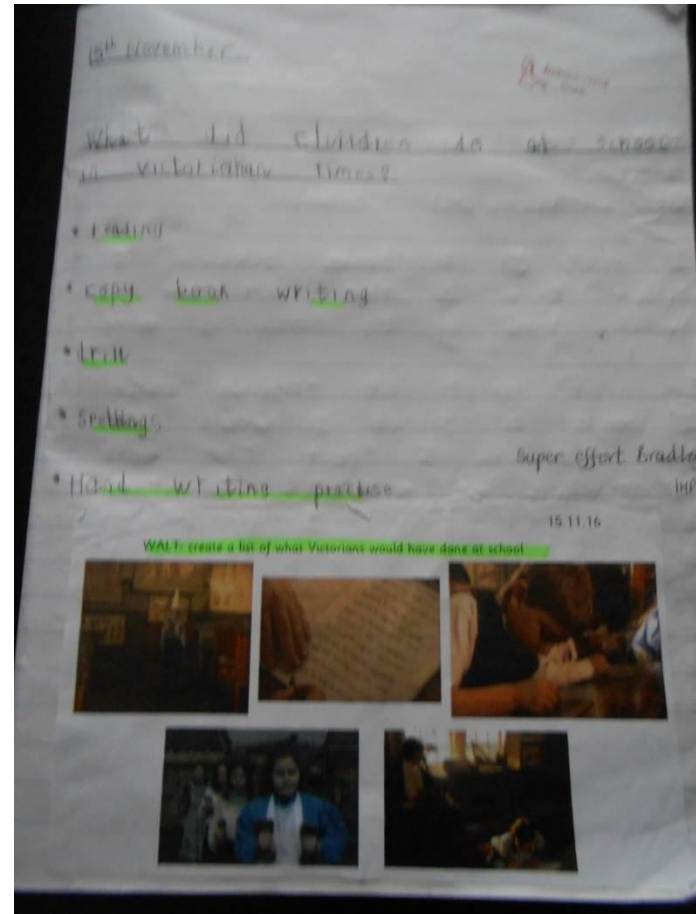 15th November
What did children do at school
in victorianan times?
• reading
• copy book writing
• drill
• spellings
• Hand writing practise
Super effort Bradle
15.11.16
WALT: create a list of what Victorians would have done at school